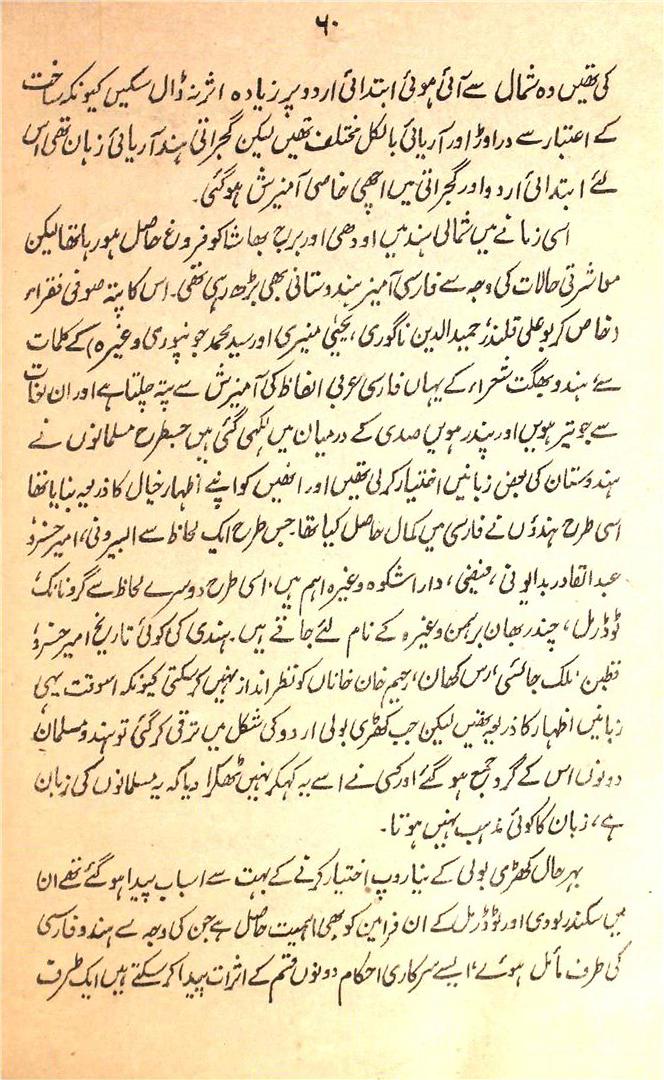 ۶۰
کی تھیں وہ شمال سے آئی ہوئی ابتدائی اردو پر زیادہ اثر نہ ڈال سکیں کیونکہ ساخت
کے اعتبار سے دراوڑ اور آریائی بالکل مختلف تھیں لیکن گجراتی ہند آریائی زبان تھی اس
لئے ابتدائی اردو اور گجراتی میں اچھی خاصی آمیزش ہوگئی۔
اسی زمانے میں شمالی ہند میں اودھی اور برج بھاشا کو فروغ حاصل ہو رہا تھا لیکن
معاشرتی حالات کی وجہ سے فارسی آمیز ہندوستانی بھی بڑھ رہی تھی۔ اس کا پتہ صوفی فقراء
(خاص کر بو علی قلندر، حمید الدین ناگوری، یحییٰ منیری اور سید محمد جونپوری وغیرہ) کے کلمات
سے، ہندو بھگت شعراء کے یہاں فارسی عربی الفاظ کی آمیزش سے پتہ چلتا ہے اور ان لغات
سے جو تیرہویں اور پندرہویں صدی کے درمیان میں لکھی گئی ہیں جسطرح مسلمانوں نے
ہندوستان کی بعض زبانیں اختیار کر لی تھیں اور انھیں کو اپنے اظہار خیال کا ذریعہ بنایا تھا
اسی طرح ہندؤں نے فارسی میں کمال حاصل کیا تھا۔ جس طرح ایک لحاظ سے البیرونی، امیر خسرو،
عبد القادر بدایونی، فیضی، دارا شکوہ وغیرہ اہم ہیں، اسی طرح دوسرے لحاظ سے گرو نانک،
ٹوڈرمل، چندر بھان برہمن وغیرہ کے نام لئے جاتے ہیں۔ ہندی کی کوئی تاریخ امیر خسرو،
قطبن، ملک جائسی، رس کھان، رحیم خان خاناں کو نظر انداز نہیں کر سکتی کیونکہ اسوقت یہی
زبانیں اظہار کا ذریعہ تھیں لیکن جب کھڑی بولی اردو کی شکل میں ترقی کر گئی تو ہندو مسلمان
دونوں اس کے گرد جمع ہو گئے اور کسی نے اسے یہ کہکر نہیں ٹھکرا دیا کہ یہ مسلمانوں کی زبان
ہے، زبان کا کوئی مذہب نہیں ہوتا۔
بہر حال کھڑی بولی کے نیا روپ اختیار کرنے کے بہت سے اسباب پیدا ہو گئے تھے ان
میں سکندر لودی اور ٹوڈرمل کے ان فرامین کو بھی اہمیت حاصل ہے جن کی وجہ سے ہندو فارسی
کی طرف مائل ہوئے، ایسے سرکاری احکام دونوں قسم کے اثرات پیدا کر سکتے ہیں ایک طرف